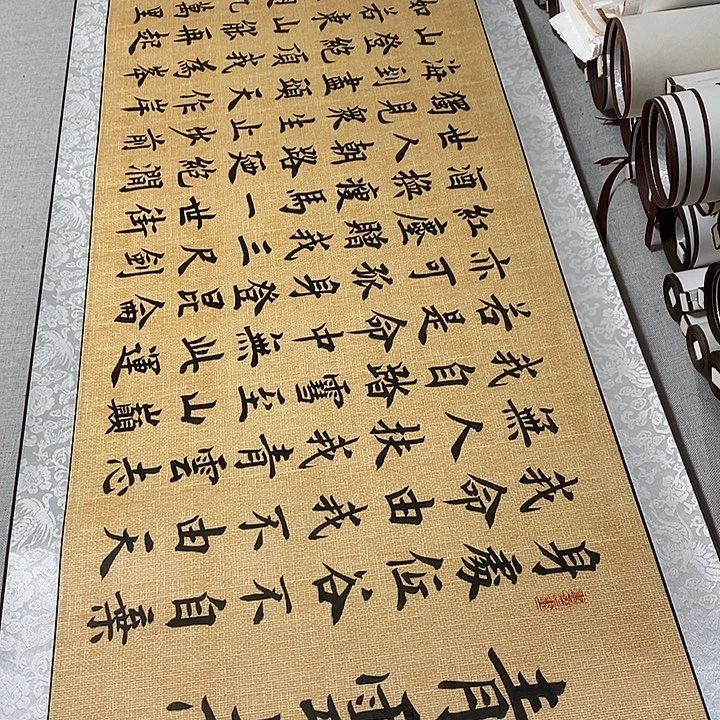 青雲
身處低谷不自棄
我命由我不由天
無人扶我青雲志
我自踏雪至山巔
若是命中無此運
亦可孤身登昆侖
紅塵贈我三尺劍
酒換瘦馬一世街
世人朝路更絕澗
獨見眾生止步前
海到盡頭天作岸
山登絕頂我為峯
如若東山能再起
九萬里